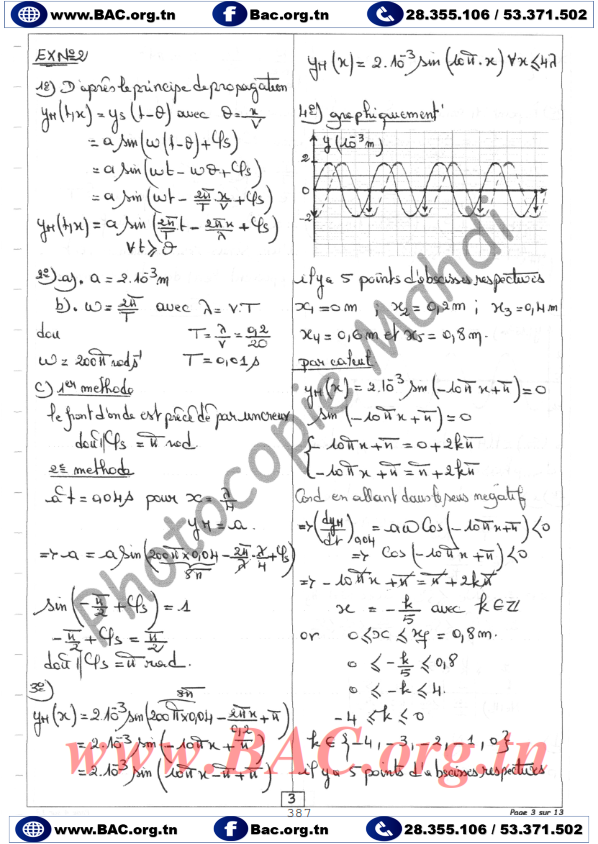 www.BAC.org.tn Bac.org.tn 28.355.106 / 53.371.502
EXN°2
1°) D'après le principe de propagation
yM(t,x) = yS(t-θ) avec θ = x/V
= a sin(ω(t-θ)+φs)
= a sin(ωt - ωθ + φs)
= a sin(ωt - 2π/T . x/V + φs)
yM(t,x) = a sin(2π/T t - 2πx/λ + φs)
∀t ≥ θ
2°) a). a = 2.10⁻³m
b). ω = 2π/T avec λ = V.T
dou T = λ/V = 0,2/20
ω = 200π rad s⁻¹ T = 0,01s
c) 1er methode
le front d'onde est précédé par un creux
d'où φs = π rad
2e methode
à t = 0,04s pour x = λ/4
yM = a.
=> a = a sin(200π×0,04 - 2π/λ . λ/4 + φs)
8π
sin(-π/2 + φs) = 1
-π/2 + φs = π/2
d'où φs = π rad.
3°)
8π
yM(x) = 2.10⁻³ sin(200π×0,04 - 2πx/0,2 + π)
= 2.10⁻³ sin(-10πx + π)
= 2.10⁻³ sin(10πx - π + π)
yM(x) = 2.10⁻³ sin(10π.x) ∀x ≤ 4λ
4°) graphiquement
y(10⁻³m)
2
0
-2
il y a 5 points d'abscisses respectives
x1 = 0m ; x2 = 0,2m ; x3 = 0,4m
x4 = 0,6m et x5 = 0,8m.
par calcul
yM(x) = 2.10⁻³ sin(-10πx + π) = 0
sin(-10πx + π) = 0
{ -10πx + π = 0 + 2kπ
-10πx + π = π + 2kπ
Cond en allant dans le sens negatif
=> (dyM/dt)0,04 = aω cos(-10πx + π) < 0
=> cos(-10πx + π) < 0
=> -10πx + π = π + 2kπ
x = -k/5 avec k ∈ Z
or 0 ≤ x ≤ xf = 0,8m.
0 ≤ -k/5 ≤ 0,8
0 ≤ -k ≤ 4.
-4 ≤ k ≤ 0
k ∈ {-4, -3, -2, -1, 0}
il y a 5 points d'abscisses respectives
Photocopie Mahdi
www.BAC.org.tn
3
387
Page 3 sur 13
www.BAC.org.tn Bac.org.tn 28.355.106 / 53.371.502